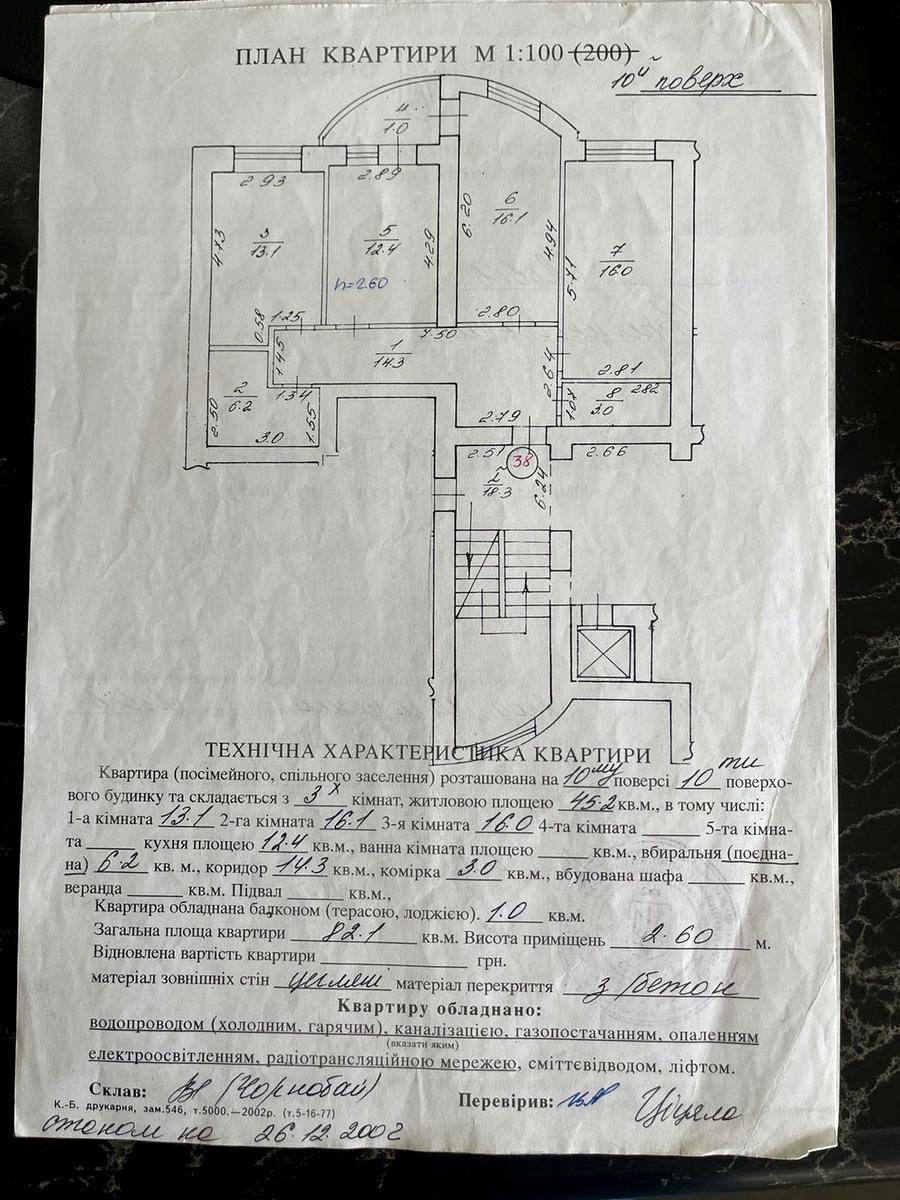 ПЛАН КВАРТИРИ М 1:100 (200)
10й поверх
4
1.0
2.93
2.89
3
13.1
4.73
5
12.4
4.29
h=2.60
6
16.1
6.20
4.94
7
16.0
5.71
0.58
1.25
7.50
2.80
1
14.3
1.45
2.64
2.81
2
6.2
1.34
2.50
3.0
1.55
8
3.0
2.82
1.07
2.79
2.51
38
2.66
2
18.3
6.24
ТЕХНІЧНА ХАРАКТЕРИСТИКА КВАРТИРИ
Квартира (посімейного, спільного заселення) розташована на 10му поверсі 10 ти поверхо-
вого будинку та складається з 3х кімнат, житловою площею 45.2 кв.м., в тому числі:
1-а кімната 13.1 2-га кімната 16.1 3-я кімната 16.0 4-та кімната 5-та кімна-
та кухня площею 12.4 кв.м., ванна кімната площею кв.м., вбиральня (поєдна-
на) 6.2 кв. м., коридор 14.3 кв.м., комірка 3.0 кв.м., вбудована шафа кв.м.,
веранда кв.м. Підвал кв.м.,
Квартира обладнана балконом (терасою, лоджією). 1.0 кв.м.
Загальна площа квартири 82.1 кв.м. Висота приміщень 2.60 м.
Відновлена вартість квартири грн.
матеріал зовнішніх стін цеглян матеріал перекриття з/бетон
Квартиру обладнано:
водопроводом (холодним, гарячим), каналізацією, газопостачанням, опаленням
(вказати яким)
електроосвітленням, радіотрансляційною мережею, сміттєвідводом, ліфтом.
Склав: (Чорнобай)
Перевірив: Ціцяло
К.-Б. друкарня, зам.546, т.5000.—2002р. (т.5-16-77)
станом на 26.12.2002